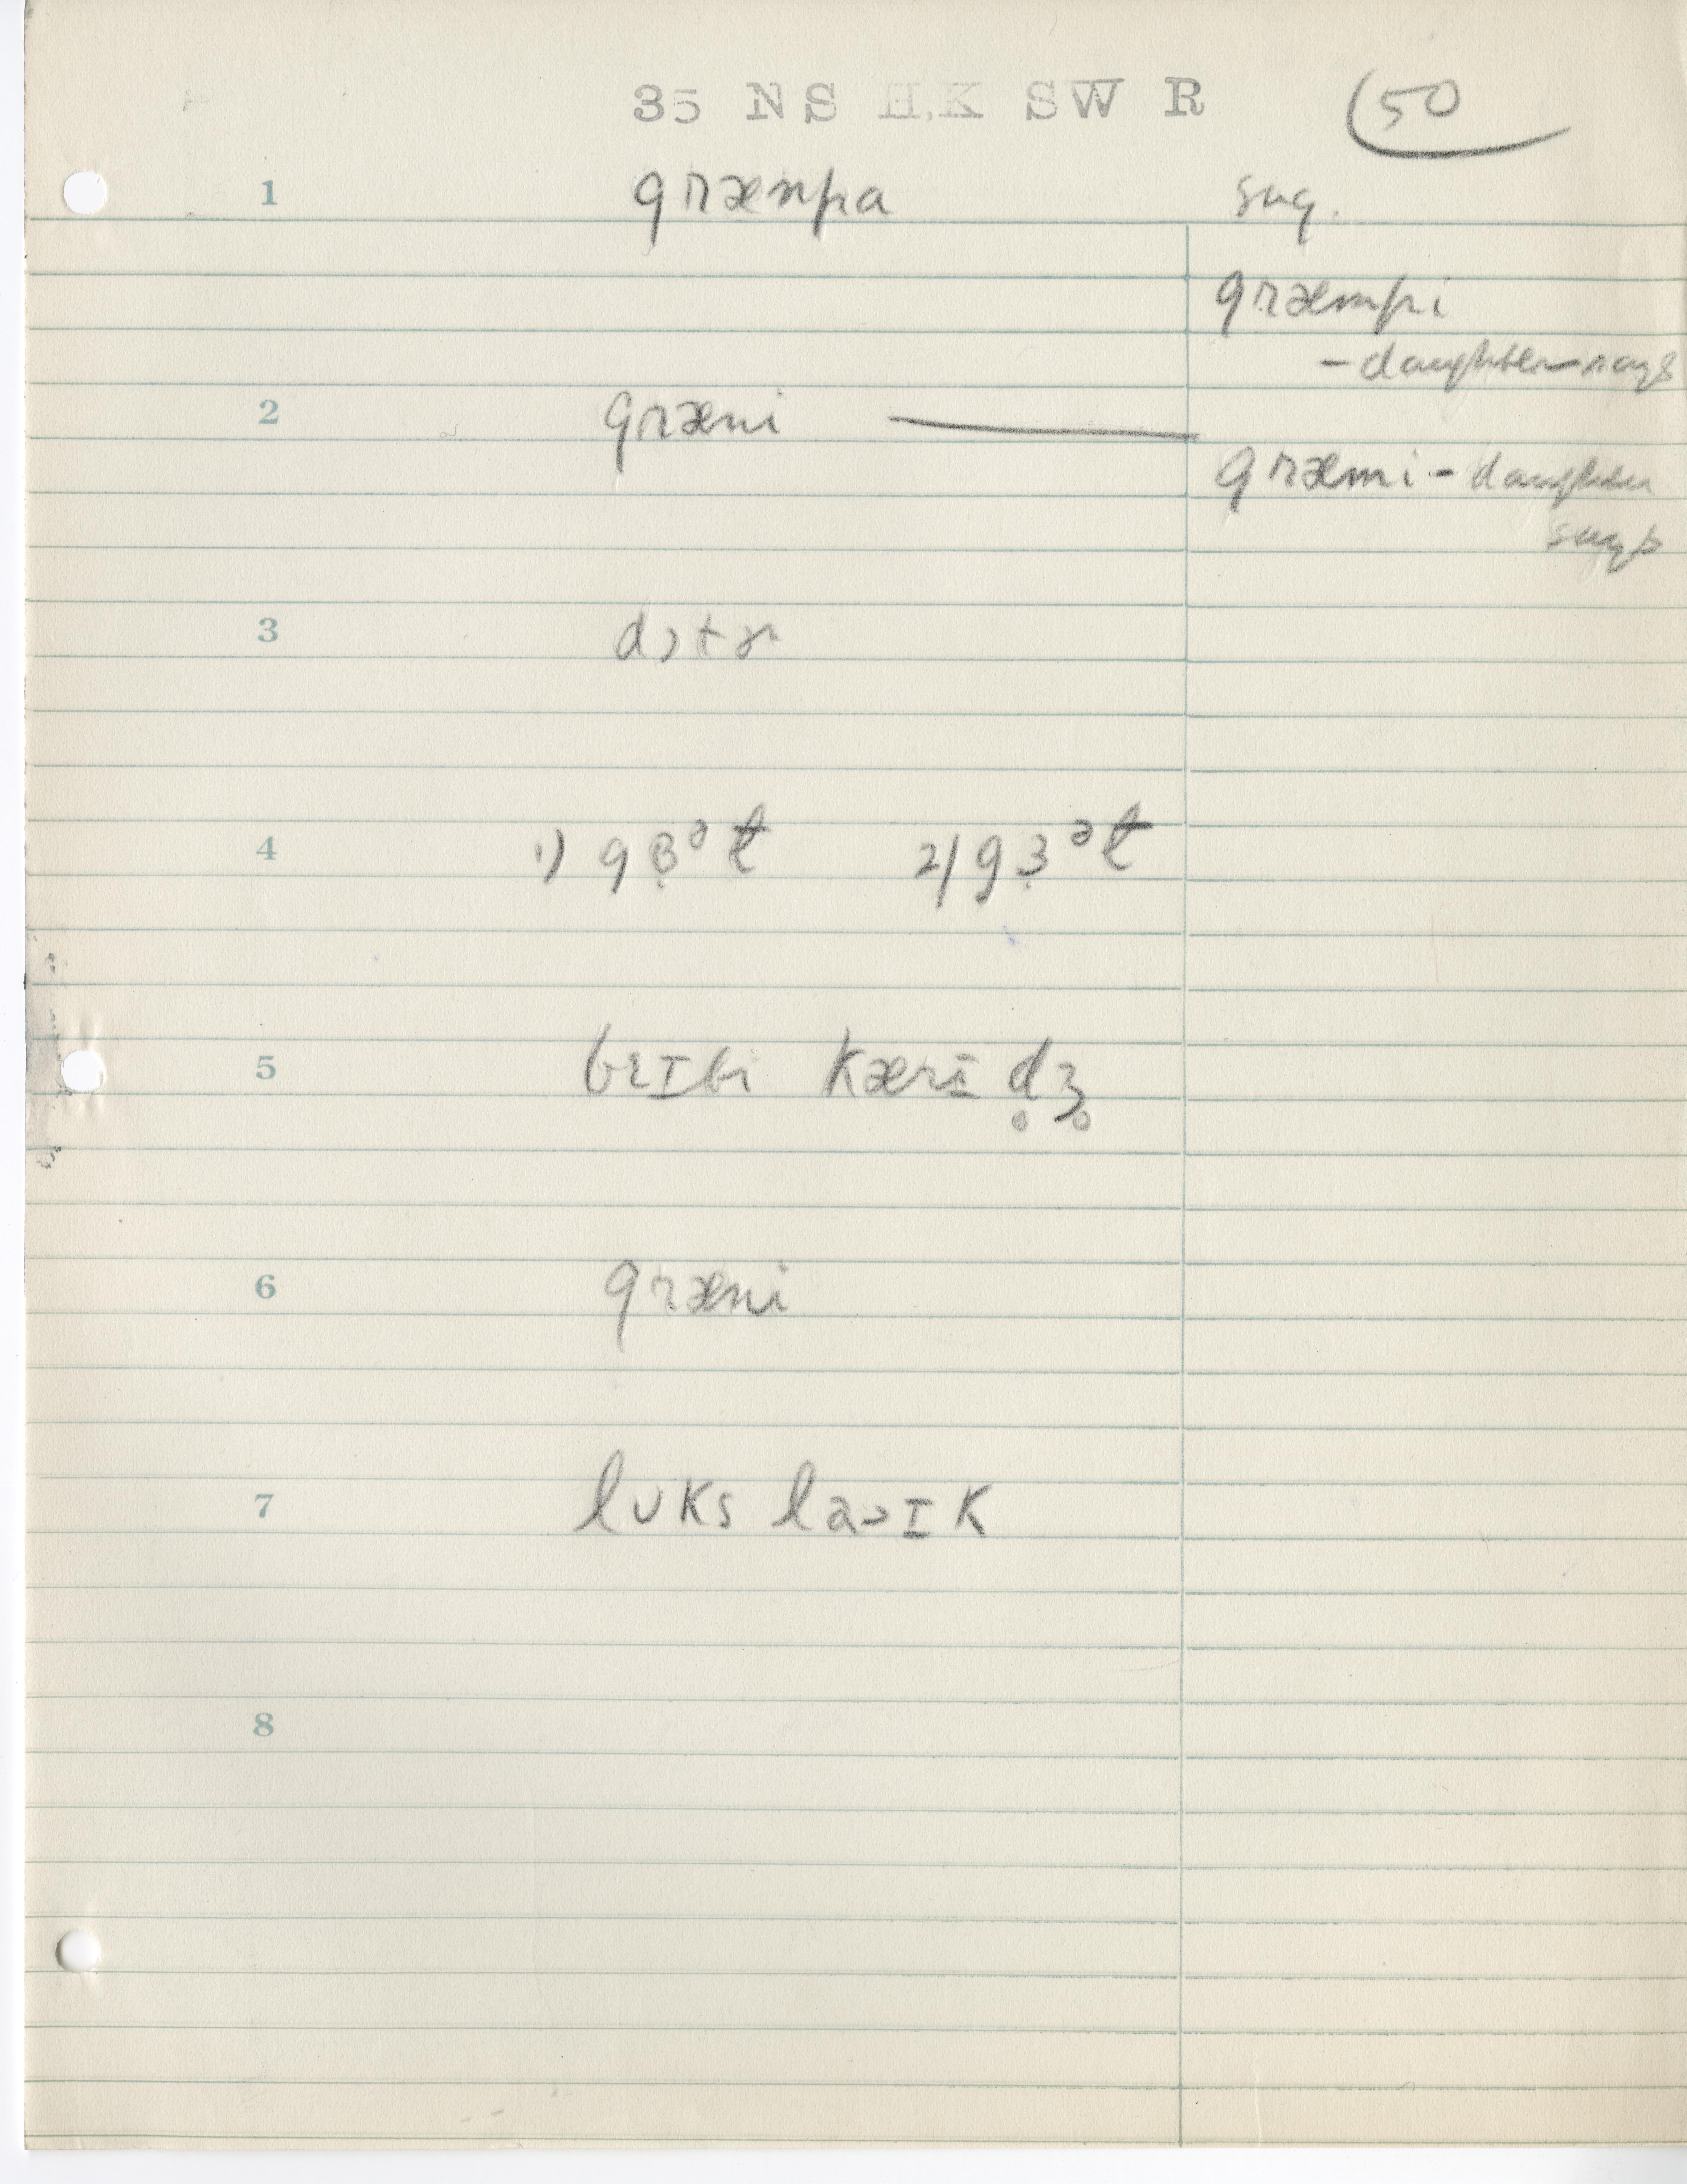 35 N S H,K SW R (50
1 grænpa sug.
græmpi
- daughter says
2 græni —
græmi - daughter
says
3 dɔtɚ
4 1) gɜ̣ᵊɫ 2) gɜ̣ᵊɫ
5 beɪbi kærɪd̥ʒ̥
6 græni
7 lʊks laɪk
8